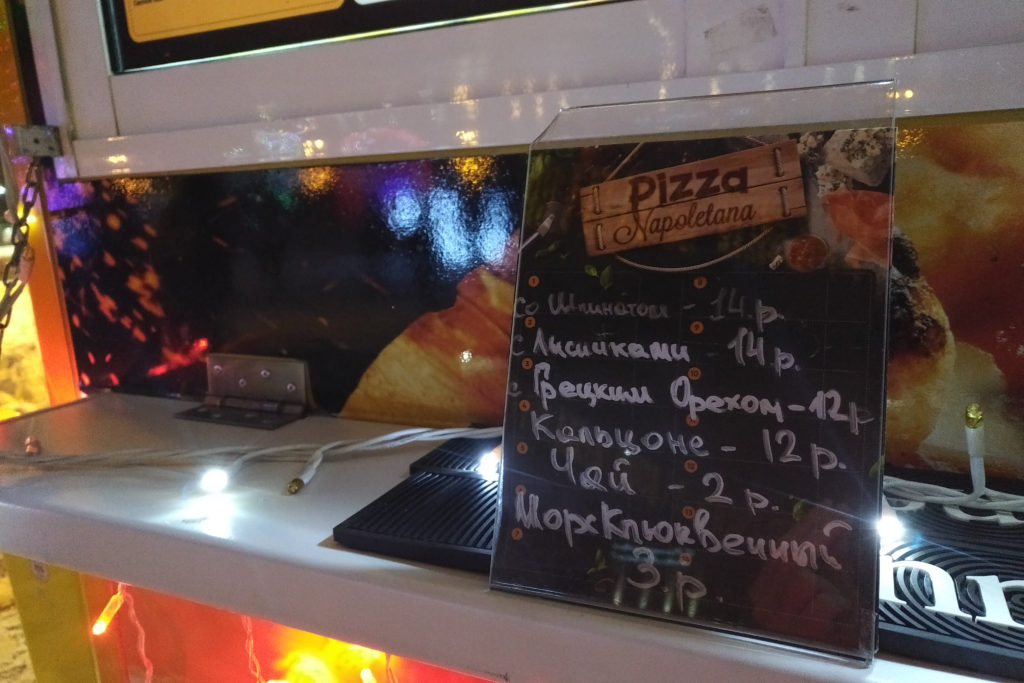 Pizza
Napoletana
Со Шпинатом - 14 р.
С Лисичками 14 р.
С Грецким Орехом - 12 р
Кальцоне - 12 р.
Чай - 2 р.
Морс Клюквенный
3 р.